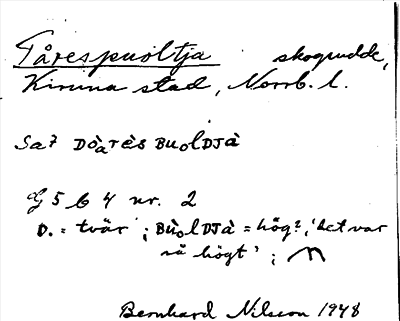 Tårespuoltja skogsudde,
Kiruna stad, Norrb. l.
Sa7 DÒaTES BUOLDJÀ
G 5 b 4 nr. 2
D. = tvär ; BUOLDJÀ = hög?, 'det var
så högt' ;
Bernhard Nilsson 1948